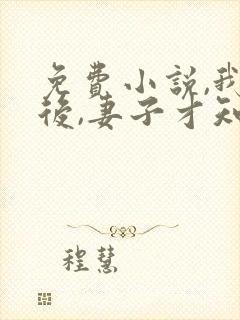 免費小説,我
後,妻子才知
程慧